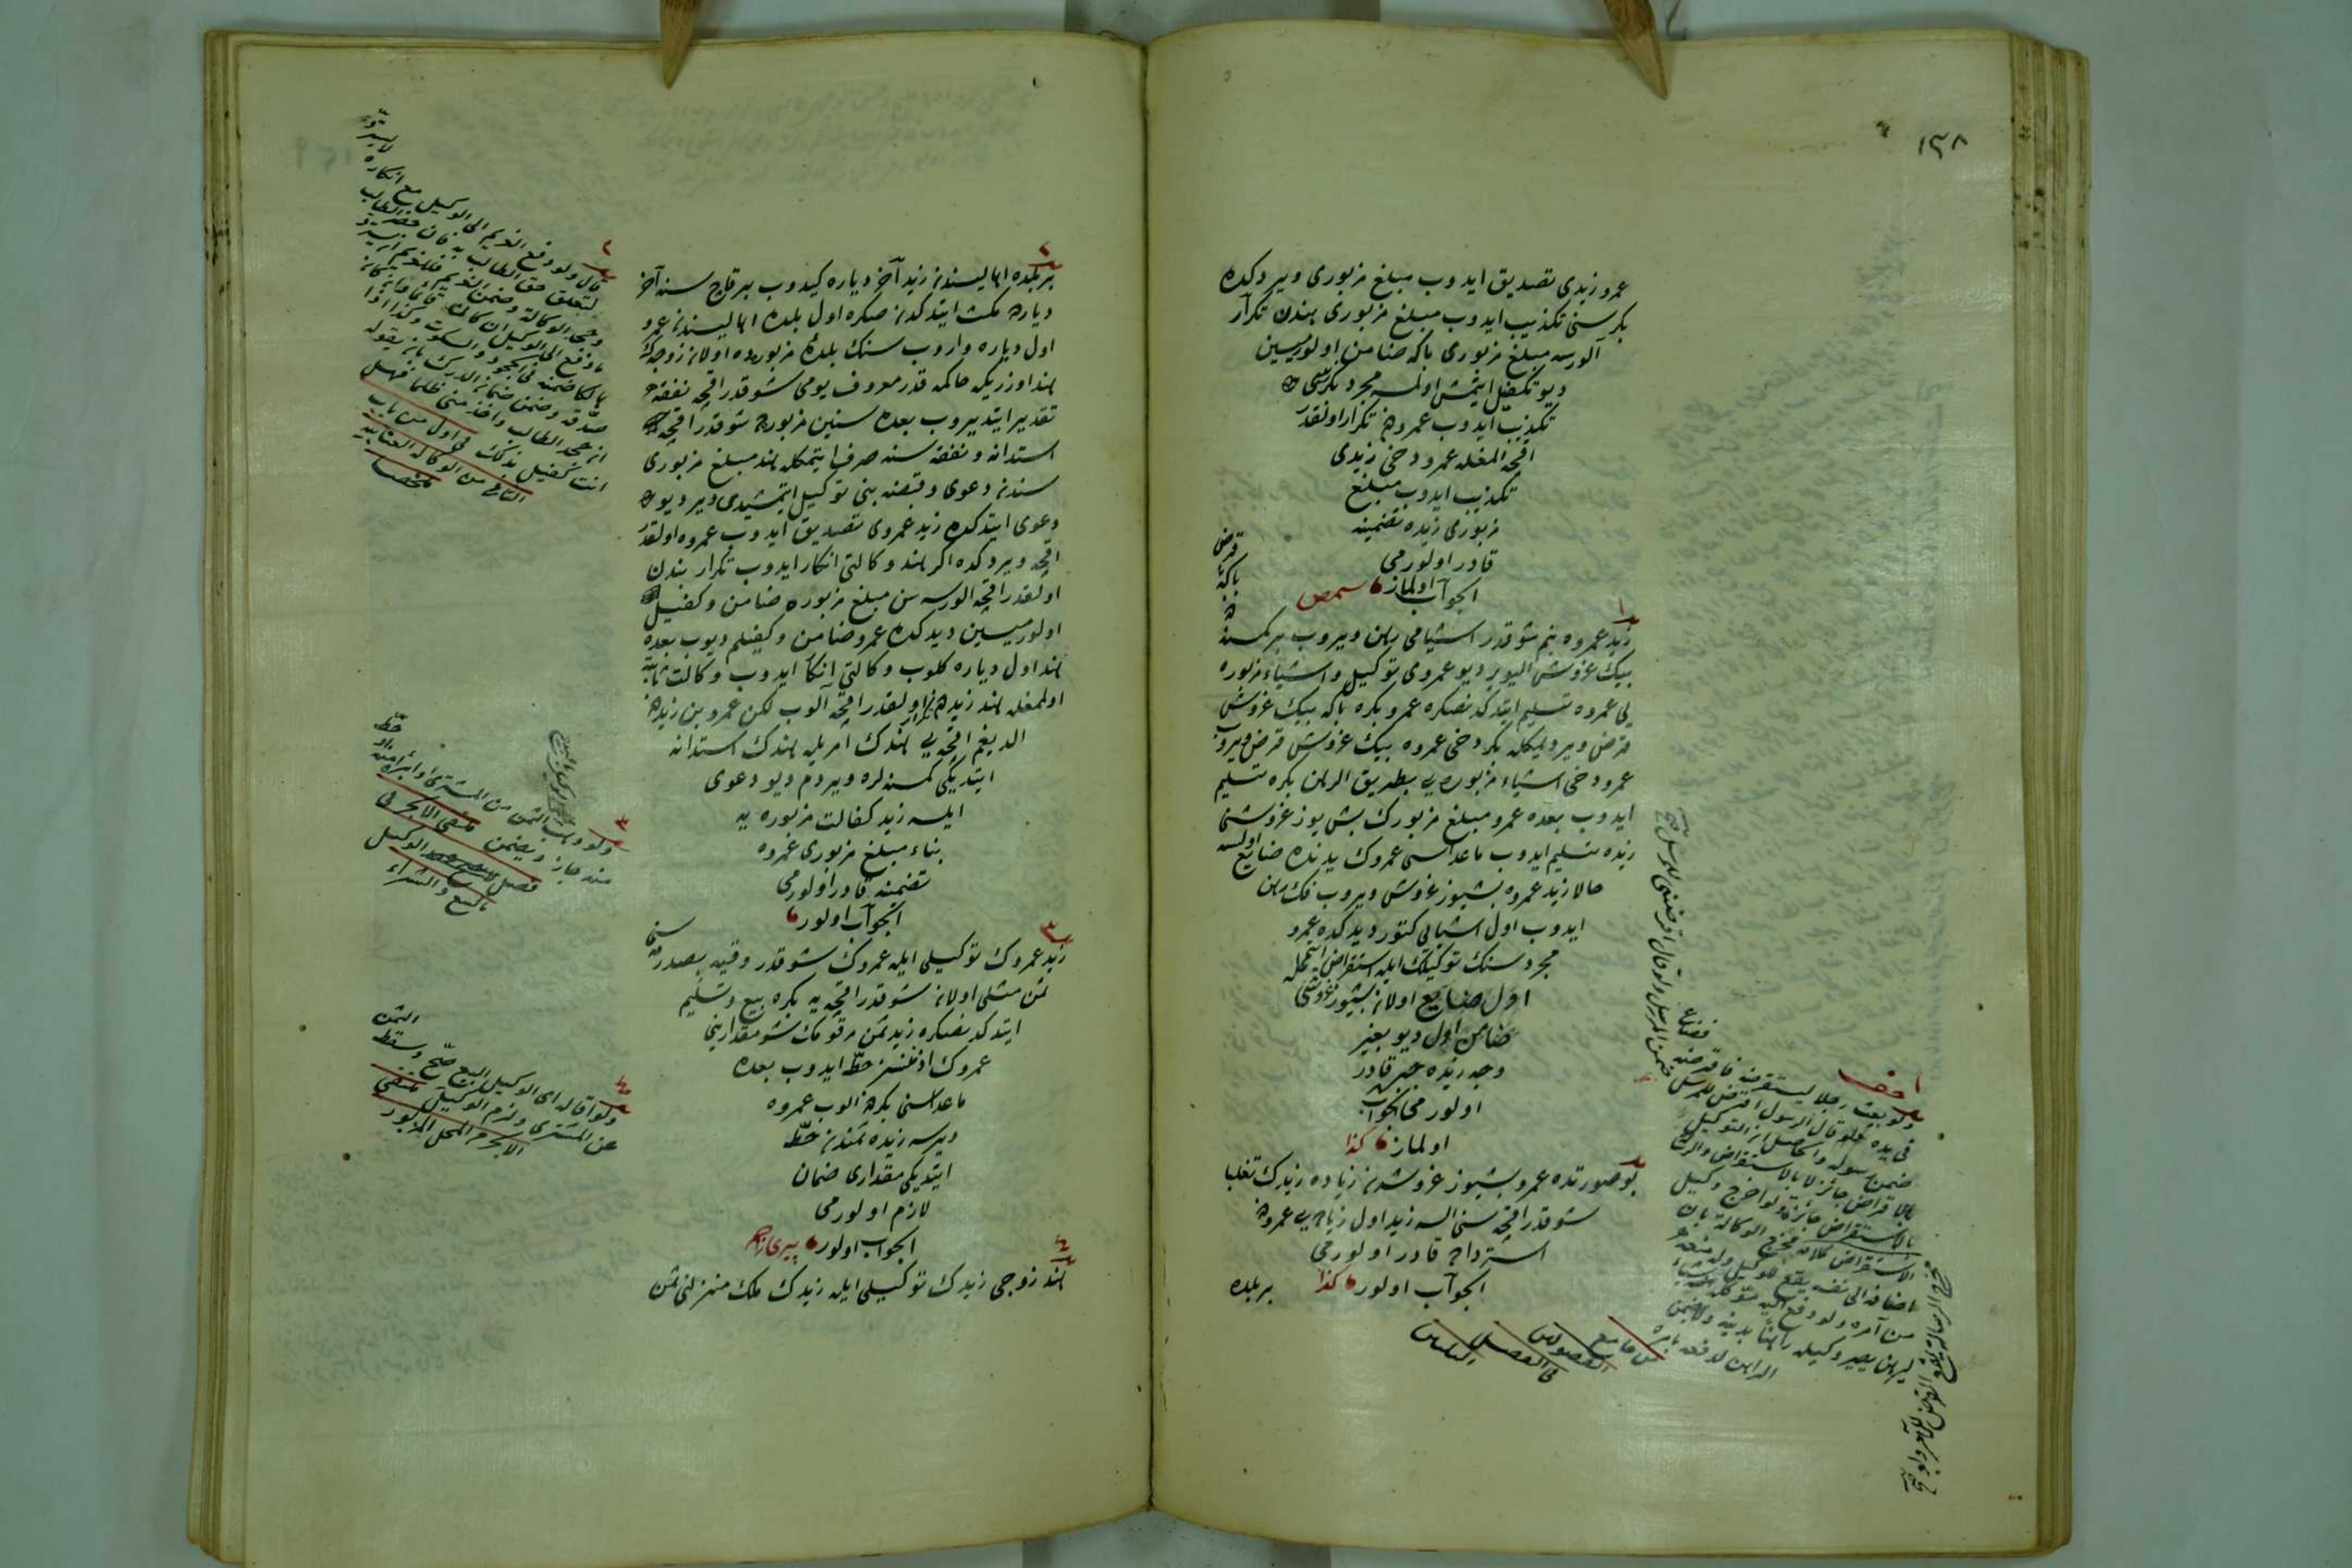 ١٣٨
عمرو زيدى تصديق ايدوب مبلغ مزبورى ويردكده
بكر سنى تكذيب ايدوب مبلغ مزبورى بندن تكرار
آلورسه مبلغ مزبورى باكه ضامن اولورميسين
ديو تكفيل ايتمش اولسه مجرد بكر
تكذيب ايدوب عمرودن تكرار اولقدر
اقچه المغله عمرو دخى زيدى
تكذيب ايدوب مبلغ
مزبورى زيده تضمينه
قادر اولورمى
الجواب اولماز
زيد عمروه بنم شو قدر اشيامى رهن ويروب بر كمسنه
بيك غروش اليوير ديو عمروى توكيل واشياء مزبوره
يى عمروه تسليم ايتدكدنصكره عمرو بكره باكه بيك غروش
قرض ويرديمكله بكر دخى عمروه بيك غروش قرض ويروب
عمرو دخى اشياء مزبوره يى بطريق الرهن بكره تسليم
ايدوب بعده عمرو مبلغ مزبورك بش يوز غروشنى
زيده تسليم ايدوب ماعداسى عمروك يدنده ضايع اولسه
حالا زيد عمروه بشيوز غروش ويروب فك رهن
ايدوب اول اشيايى كتور ديدكده عمرو
مجرد سنك توكيلك ايله استقراض ايتمكله
اول ضايع اولان بشيوز غروشى
ضامن اول ديو بغير
وجه زيده جبره قادر
اولورمى الجواب
اولماز كذا
بو صورتده عمرو بشيوز غروشدن زياده زيدك تغلبا
شو قدر اقچه سنى السه زيد اول زياده يى عمرودن
استرداده قادر اولورمى
الجواب اولور كذا
بر بلده
ولو بعث رجلا ليستقرضه فاقرضه فضاع
فى يده فلو قال الرسول اقرض للمرسل ضمن المرسل ولو قال اقرضنى للمرسل
ضمن رسوله والحاصل ان التوكيل
بالاقراض جائز لا بالاستقراض والرسالة
بالاستقراض جائزة ولو اخرج وكيل
الاستقراض كلامه مخرج الوكالة بان
اضافه الى نفسه يقع للوكيل وله منعه
من آمره ولو دفع اليه
ليرهن يصير وكيله راهنا بدينه ولا يضمن
الراهن لدفعه بامره من جامع
الفصولين
فى الفصل
الثلاثين
بر بلده اهاليسندن زيد آخر دياره كيدوب بر قاچ سنه آخر
ديارده مكث ايتدكدن صكره اول بلده اهاليسندن عمرو
اول دياره واروب سنك بلده مزبوره ده اولان زوجه ك
هند اوزريكه حاكمه قدر معروف يومى شو قدر اقچه نفقه
تقدير ايتديروب بعده سنين مزبوره ده شو قدر اقچه
استدانه ونفقه سنه صرف ايتمكله هند مبلغ مزبورى
سندن دعوى وقبضه بنى توكيل ايتمشيدى ويرديو
دعوى ايتدكده زيد عمروى تصديق ايدوب عمروه اولقدر
اقچه ويردكده اكر هند وكالتى انكار ايدوب تكرار بندن
اولقدر اقچه الورسه سن مبلغ مزبوره ضامن وكفيل
اولورميسين ديدكده عمرو ضامن وكفيلم ديوب بعده
هند اول دياره كلوب وكالتى انكار ايدوب وكالت ثابته
اولمغله هند زيددن تكرار اولقدر اقچه آلوب لكن عمرو بن زيددن
الديغم اقچه يى هندك امريله هندك استدانه
ايتديكى كمسنه لره ويردم ديو دعوى
ايلسه زيد كفالت مزبوره يه
بناء مبلغ مزبورى عمروه
تضمينه قادر اولورمى
الجواب اولور
زيد عمروك توكيلى ايله عمروك شو قدر وقيه
ثمن مثلى اولان شو قدر اقچه يه بكره بيع وتسليم
ايتدكدنصكره زيد ثمن مرقومك شو مقدارينى
عمروك اذنسز حط ايدوب بعده
ماعداسنى بكردن الوب عمروه
ويرسه زيده ثمندن حط
ايتديكى مقدارى ضمان
لازم اولورمى
الجواب اولور
هند زوجى زيدك توكيلى ايله زيدك ملك منزلنى ثمن
قال ولو دفع الغريم الى الوكيل مع انكاره لا يسترده
لتعلق حق الطالب به فان حضر الطالب
وجحد الوكالة وضمن الغريم فللغريم ان يسترد
ما دفع الى الوكيل ان كان قائما
هالكا ضمنه فى الجحود والسكوت وكذا اذا
صدقه وضمن ضمان الدرك بان يقوله
ان جحد الطالب واخذ منى ظلما فهل
انت كفيل بذلك فى اول من باب
الثانى من الوكالة العتابيه
ملخصا
ولو وهب الثمن من المشترى او ابرأه منه او حط
منه جاز ويضمن ملتقى الابحر فى
فصل الوكيل
بالبيع والشراء
ولو اقاله اى الوكيل البيع صح وسقط الثمن
عن المشترى ولزم الوكيل ملتقى
الابحر المحل المزبور